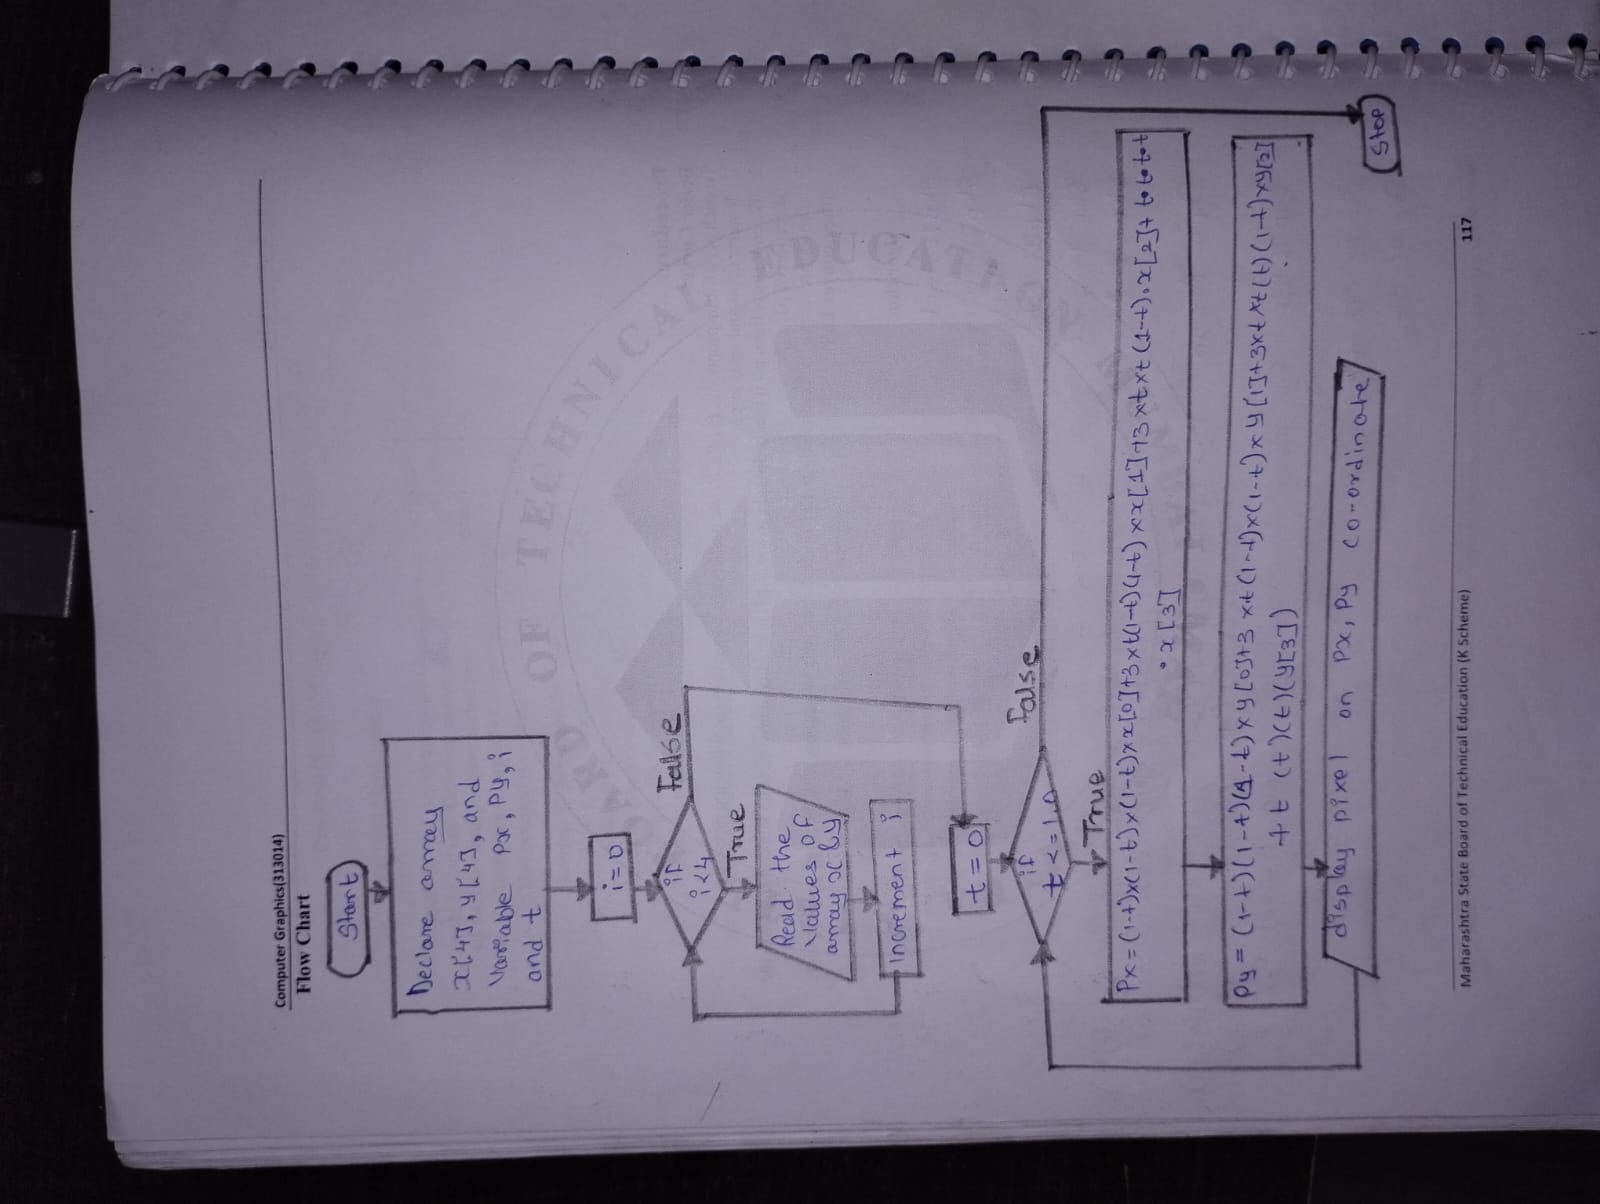 Computer Graphics(313014)
Flow Chart
Start
Declare array
x[4], y[4], and
Variable Px, Py, i
and t
i=0
if
i<4
False
True
Read the
values of
array x & y
Increment i
t=0
if
t<=1.0
False
True
Px=(1-t)x(1-t)x(1-t)xx[0]+3xt(1-t)(1-t)xx[1]+3xtxt(1-t).x[2]+t•t•t
•x[3]
Py=(1-t)(1-t)(1-t)xy[0]+3xt(1-t)x(1-t)xy[1]+3xtxt(t)(1-t)xy[2]
+t(t)(t)(y[3])
display pixel on Px, Py co-ordinate
Stop
Maharashtra State Board of Technical Education (K Scheme)
117
BOARD OF TECHNICAL EDUCATION